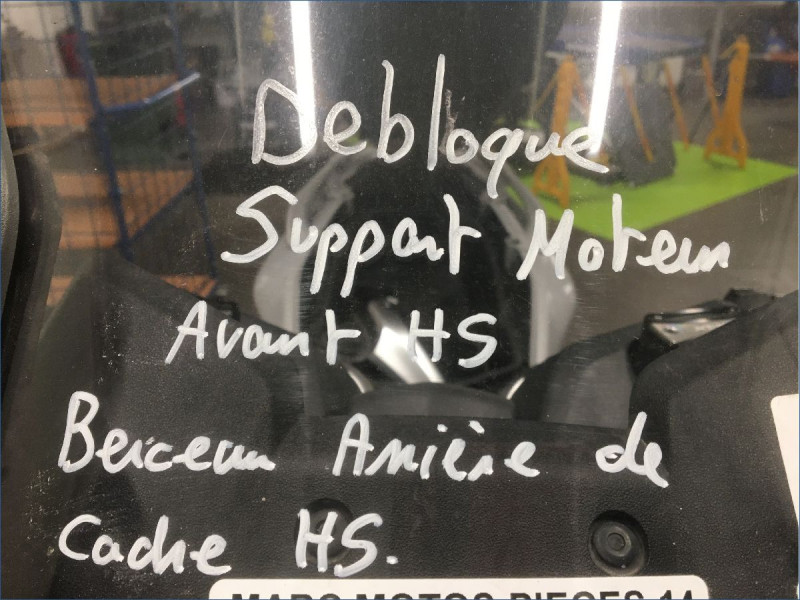 Debloque
Support Moteur
Avant HS
Berceau Arrière de
Cadre HS.
MARC MOTOS PIECES 14